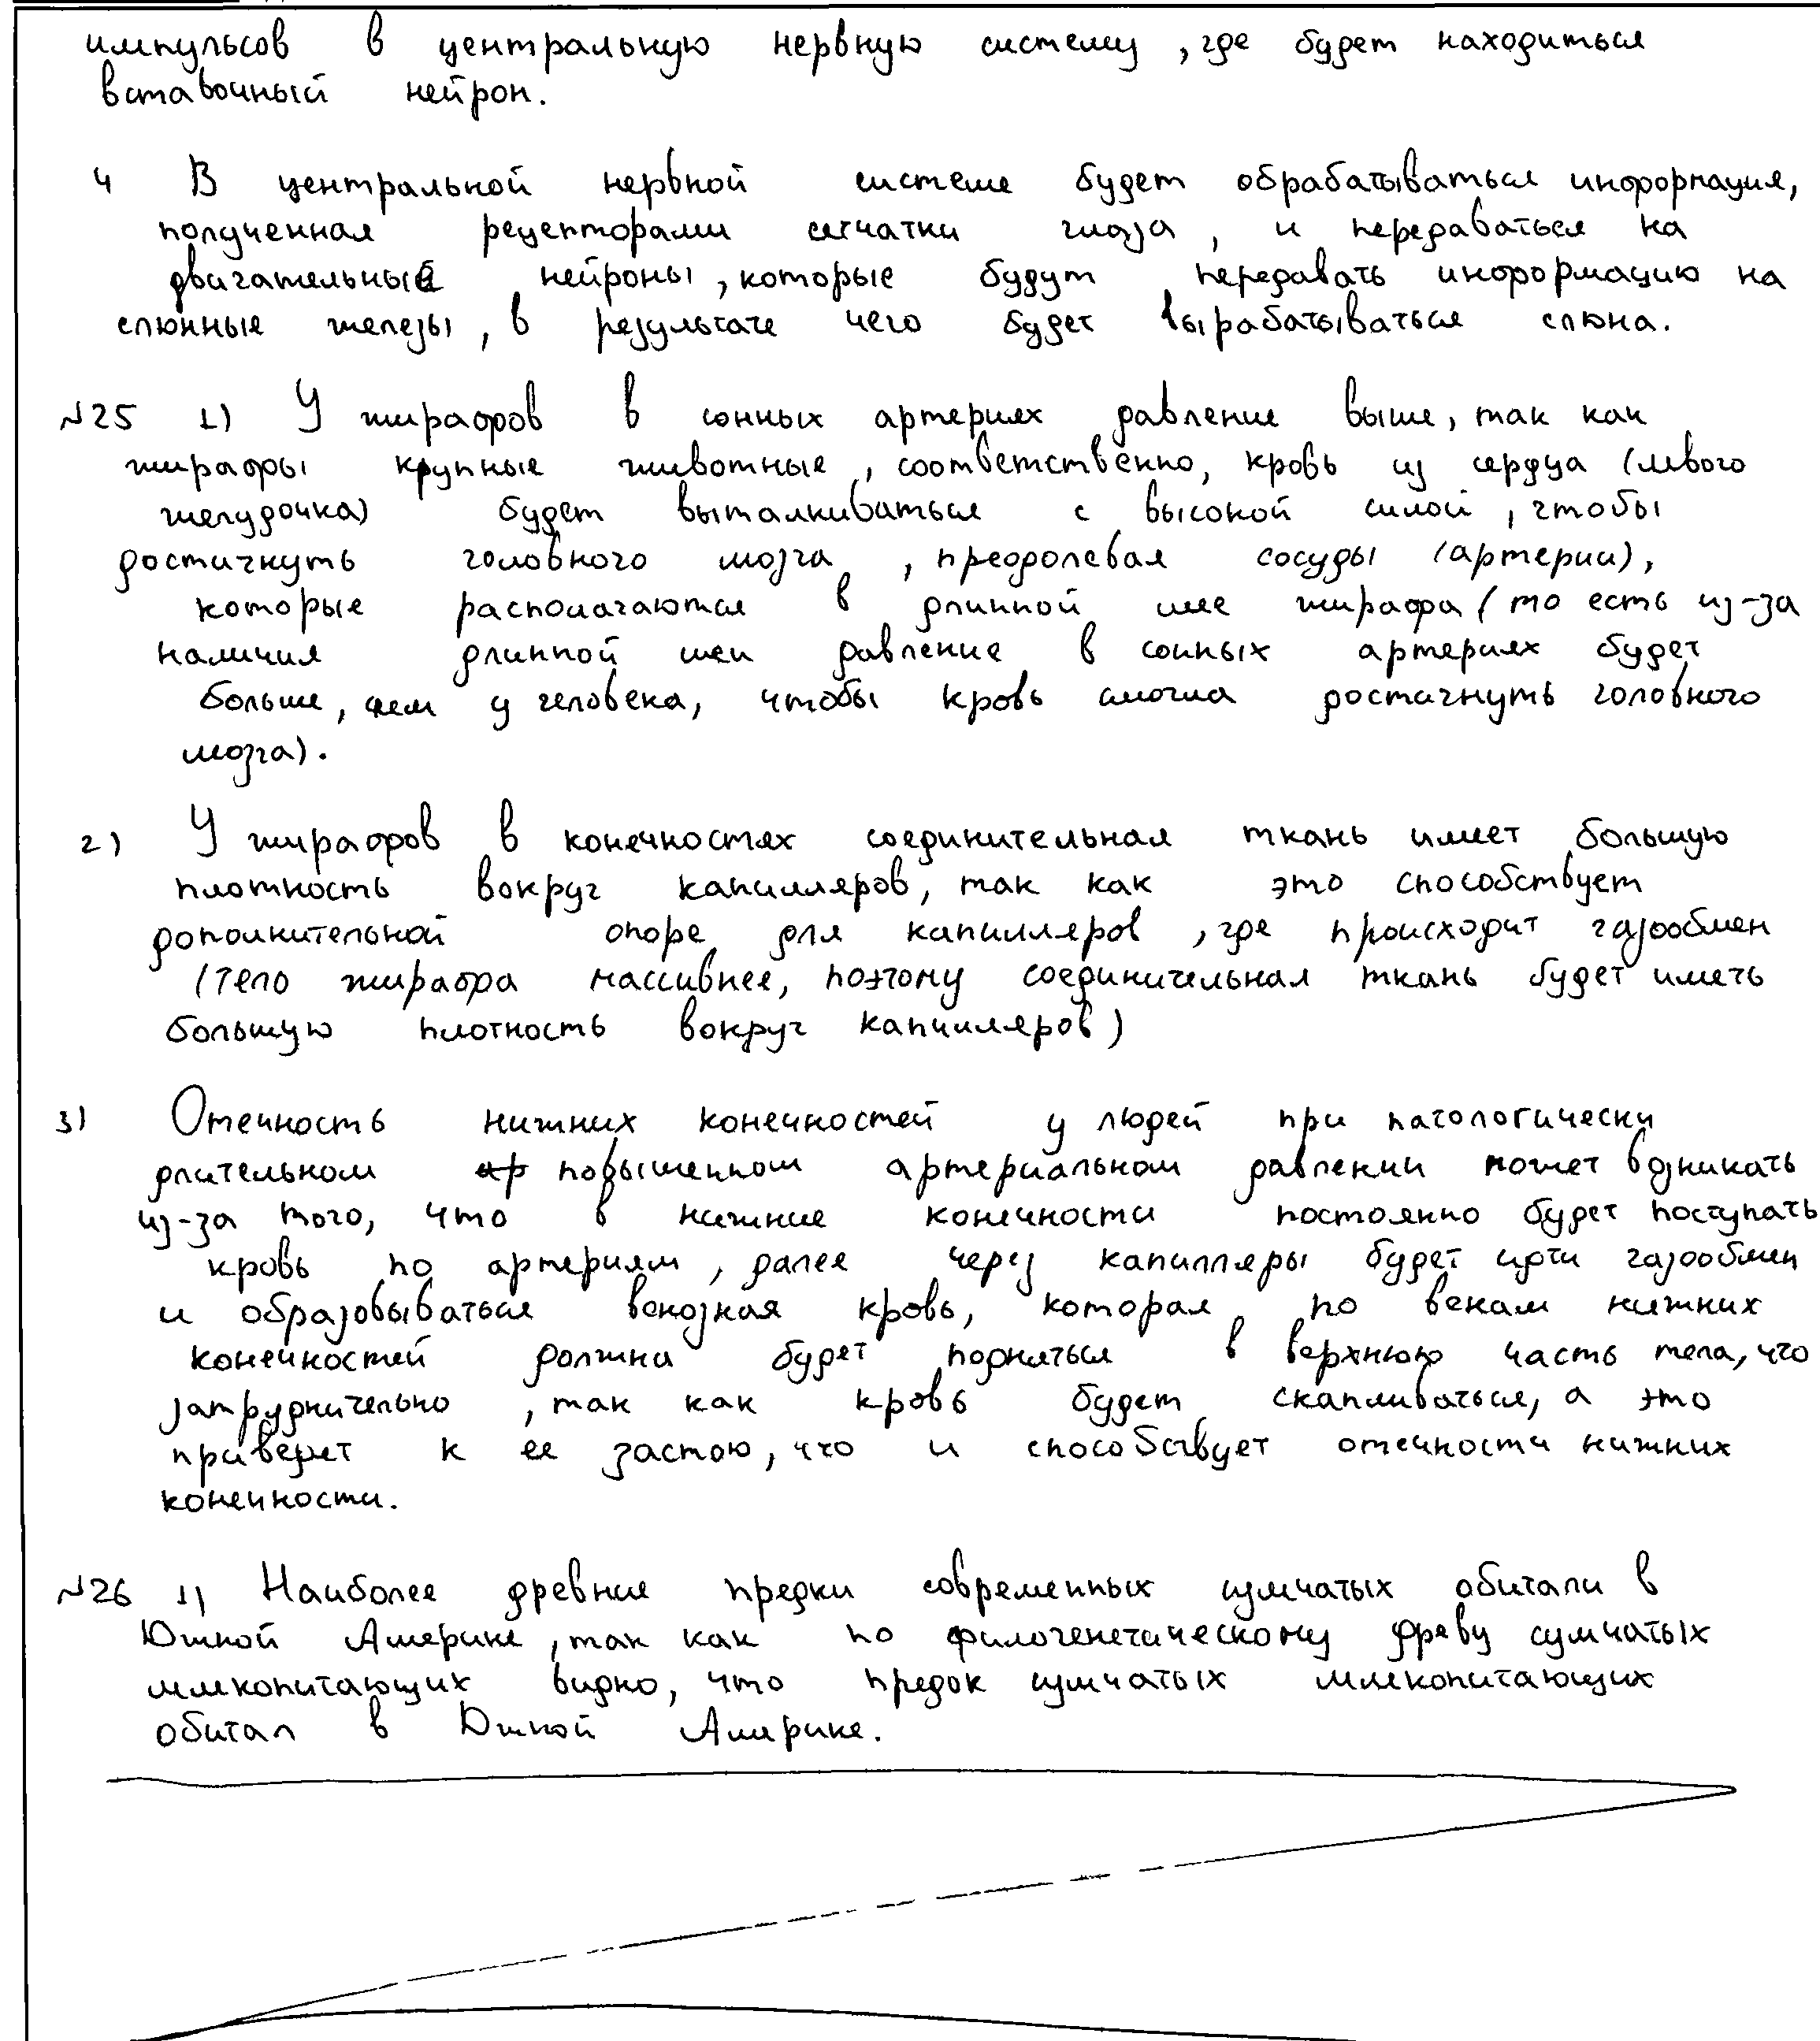 импульсов в центральную нервную систему, где будет находиться
вставочный нейрон.
4 В центральной нервной системе будет обрабатываться информация,
полученная рецепторами сетчатки глаза, и передаваться на
двигательные нейроны, которые будут передавать информацию на
слюнные железы, в результате чего будет вырабатываться слюна.
№25 1) У жирафов в сонных артериях давление выше, так как
жирафы крупные животные, соответственно, кровь из сердца (левого
желудочка) будет выталкиваться с высокой силой, чтобы
достигнуть головного мозга, преодолевая сосуды (артерии),
которые располагаются в длинной шее жирафа (то есть из-за
наличия длинной шеи давление в сонных артериях будет
больше, чем у человека, чтобы кровь смогла достигнуть головного
мозга).
2) У жирафов в конечностях соединительная ткань имеет большую
плотность вокруг капилляров, так как это способствует
дополнительной опоре для капилляров, где происходит газообмен
(тело жирафа массивнее, поэтому соединительная ткань будет иметь
большую плотность вокруг капилляров)
3) Отечность нижних конечностей у людей при патологически
длительном повышенном артериальном давлении может возникать
из-за того, что в нижние конечности постоянно будет поступать
кровь по артериям, далее через капилляры будет идти газообмен
и образовываться венозная кровь, которая по венам нижних
конечностей должна будет подняться в верхнюю часть тела, что
затруднительно, так как кровь будет скапливаться, а это
приведет к ее застою, что и способствует отечности нижних
конечности.
№26 1) Наиболее древние предки современных сумчатых обитали в
Южной Америке, так как по филогенетическому древу сумчатых
млекопитающих видно, что предок сумчатых млекопитающих
обитал в Южной Америке.